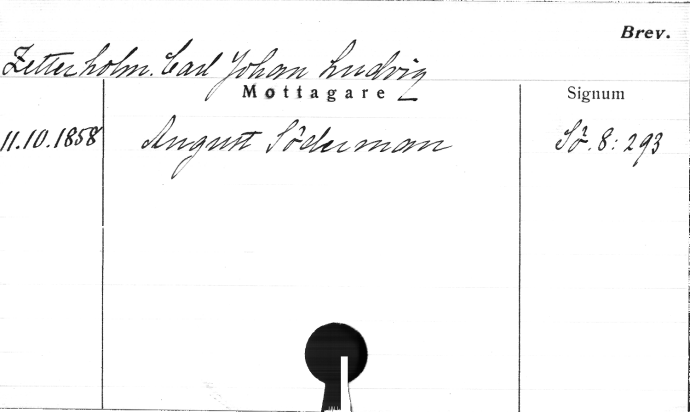 Brev.
Zetterholm. Carl Johan Ludvig
Mottagare Signum
11.10.1858 August Söderman Sö. 8: 293